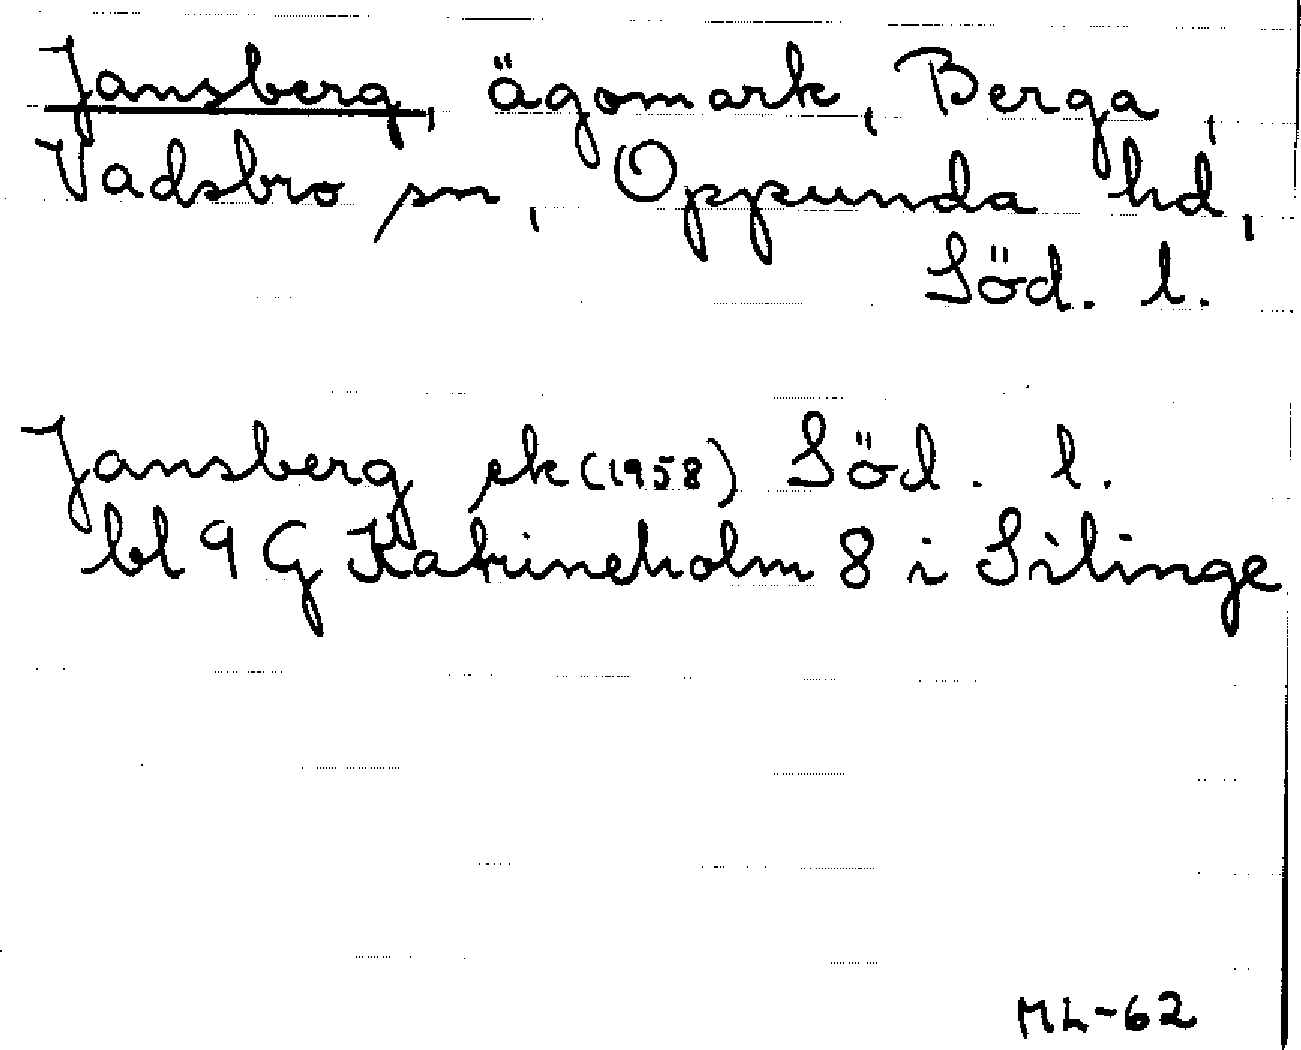 Jansberg, ägomark, Berga,
Vadsbro sn, Oppunda hd,
Söd. l.
Jansberg ek (1958) Söd. l.
bl 9 G Katrineholm 8 i Silinge
ML-62